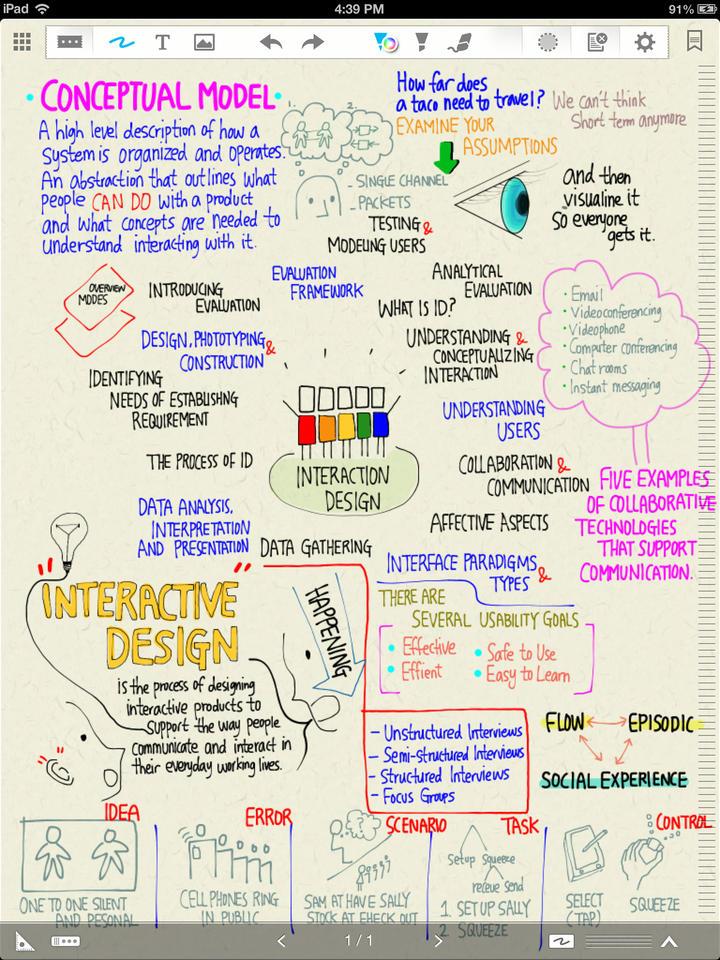 iPad
4:39 PM
91%
T
CONCEPTUAL MODEL
A high level description of how a
System is organized and operates.
An abstraction that outlines what
people CAN DO with a product
and what concepts are needed to
understand interacting with it.
1.
2.
- SINGLE CHANNEL
- PACKETS
How far does
a taco need to travel?
EXAMINE YOUR
ASSUMPTIONS
We can't think
Short term anymore
and then
visualine it
So everyone
gets it.
TESTING &
MODELING USERS
OVERVIEW
MODES
INTRODUCING
EVALUATION
EVALUATION
FRAMEWORK
ANALYTICAL
EVALUATION
WHAT IS ID?
DESIGN, PHOTOTYPING &
CONSTRUCTION
UNDERSTANDING &
CONCEPTUALIZING
INTERACTION
Email
Videoconferencing
Videophone
Computer conferencing
Chat rooms
Instant messaging
IDENTIFYING
NEEDS OF ESTABLISHNG
REQUIREMENT
UNDERSTANDING
USERS
THE PROCESS OF ID
INTERACTION
DESIGN
COLLABORATION &
COMMUNICATION
FIVE EXAMPLES
OF COLLABORATIVE
TECHNOLOGIES
THAT SUPPORT
COMMUNICATION.
DATA ANALYSIS,
INTERPRETATION
AND PRESENTATION
DATA GATHERING
AFFECTIVE ASPECTS
INTERFACE PARADIGMS
TYPES &
"INTERACTIVE"
DESIGN
is the process of designing
interactive products to
Support the way people
communicate and interact in
their everyday working lives.
HAPPENING
THERE ARE
SEVERAL USABILITY GOALS
Effective
Effient
Safe to Use
Easy to Learn
- Unstructured Interviews
- Semi-Structured Interviews
- Structured Interviews
- Focus Groups
FLOW
EPISODIC
SOCIAL EXPERIENCE
IDEA
ONE TO ONE SILENT
AND PESONAL
ERROR
CELL PHONES RING
IN PUBLIC
SCENARIO
SAM AT HAVE SALLY
STOCK AT EHECK OUT
TASK
Setup Squeeze
receue send
1. SET UP SALLY
2. SQUEEZE
CONTROL
SELECT
(TAP)
SQUEEZE
1 / 1